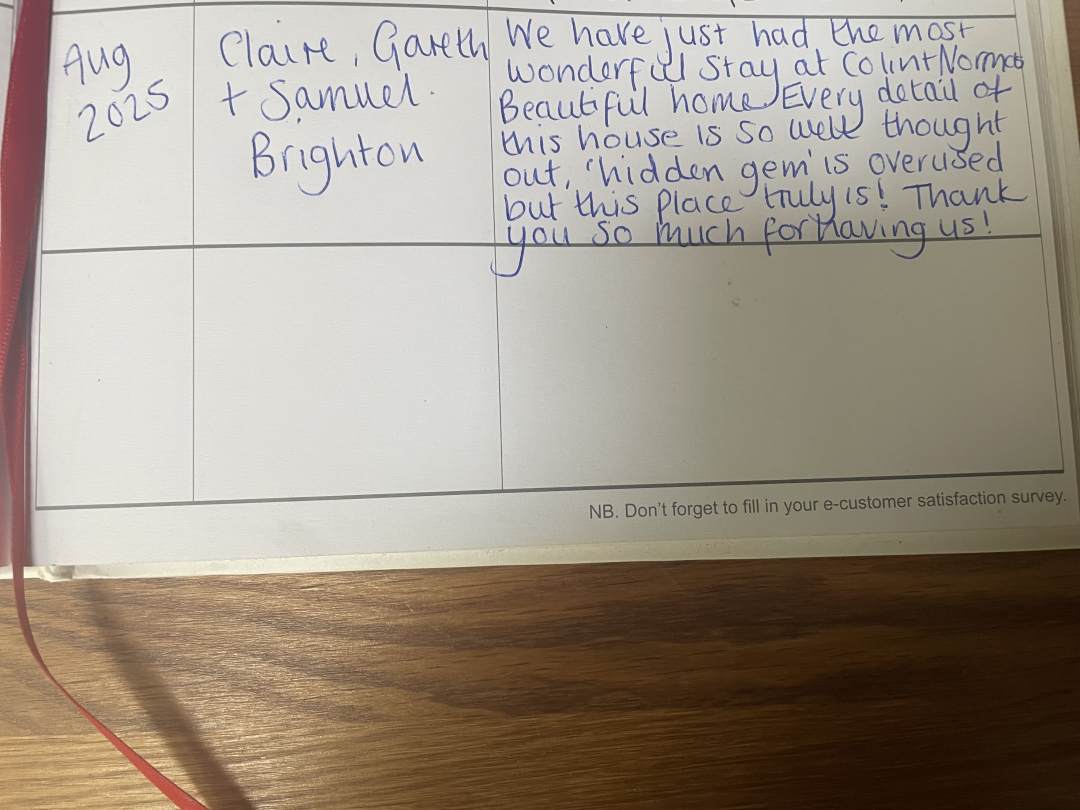 Aug
2025
Claire, Gareth
+ Samuel.
Brighton
We have just had the most
wonderful stay at Colin + Norma's
Beautiful home. Every detail of
this house is so well thought
out, 'hidden gem' is overused
but this place truly is! Thank
you so much for having us!
NB. Don't forget to fill in your e-customer satisfaction survey.